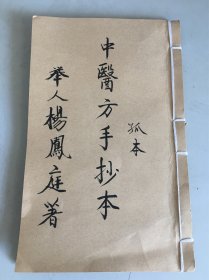 孤本
中醫方手抄本
举人楊鳳庭著